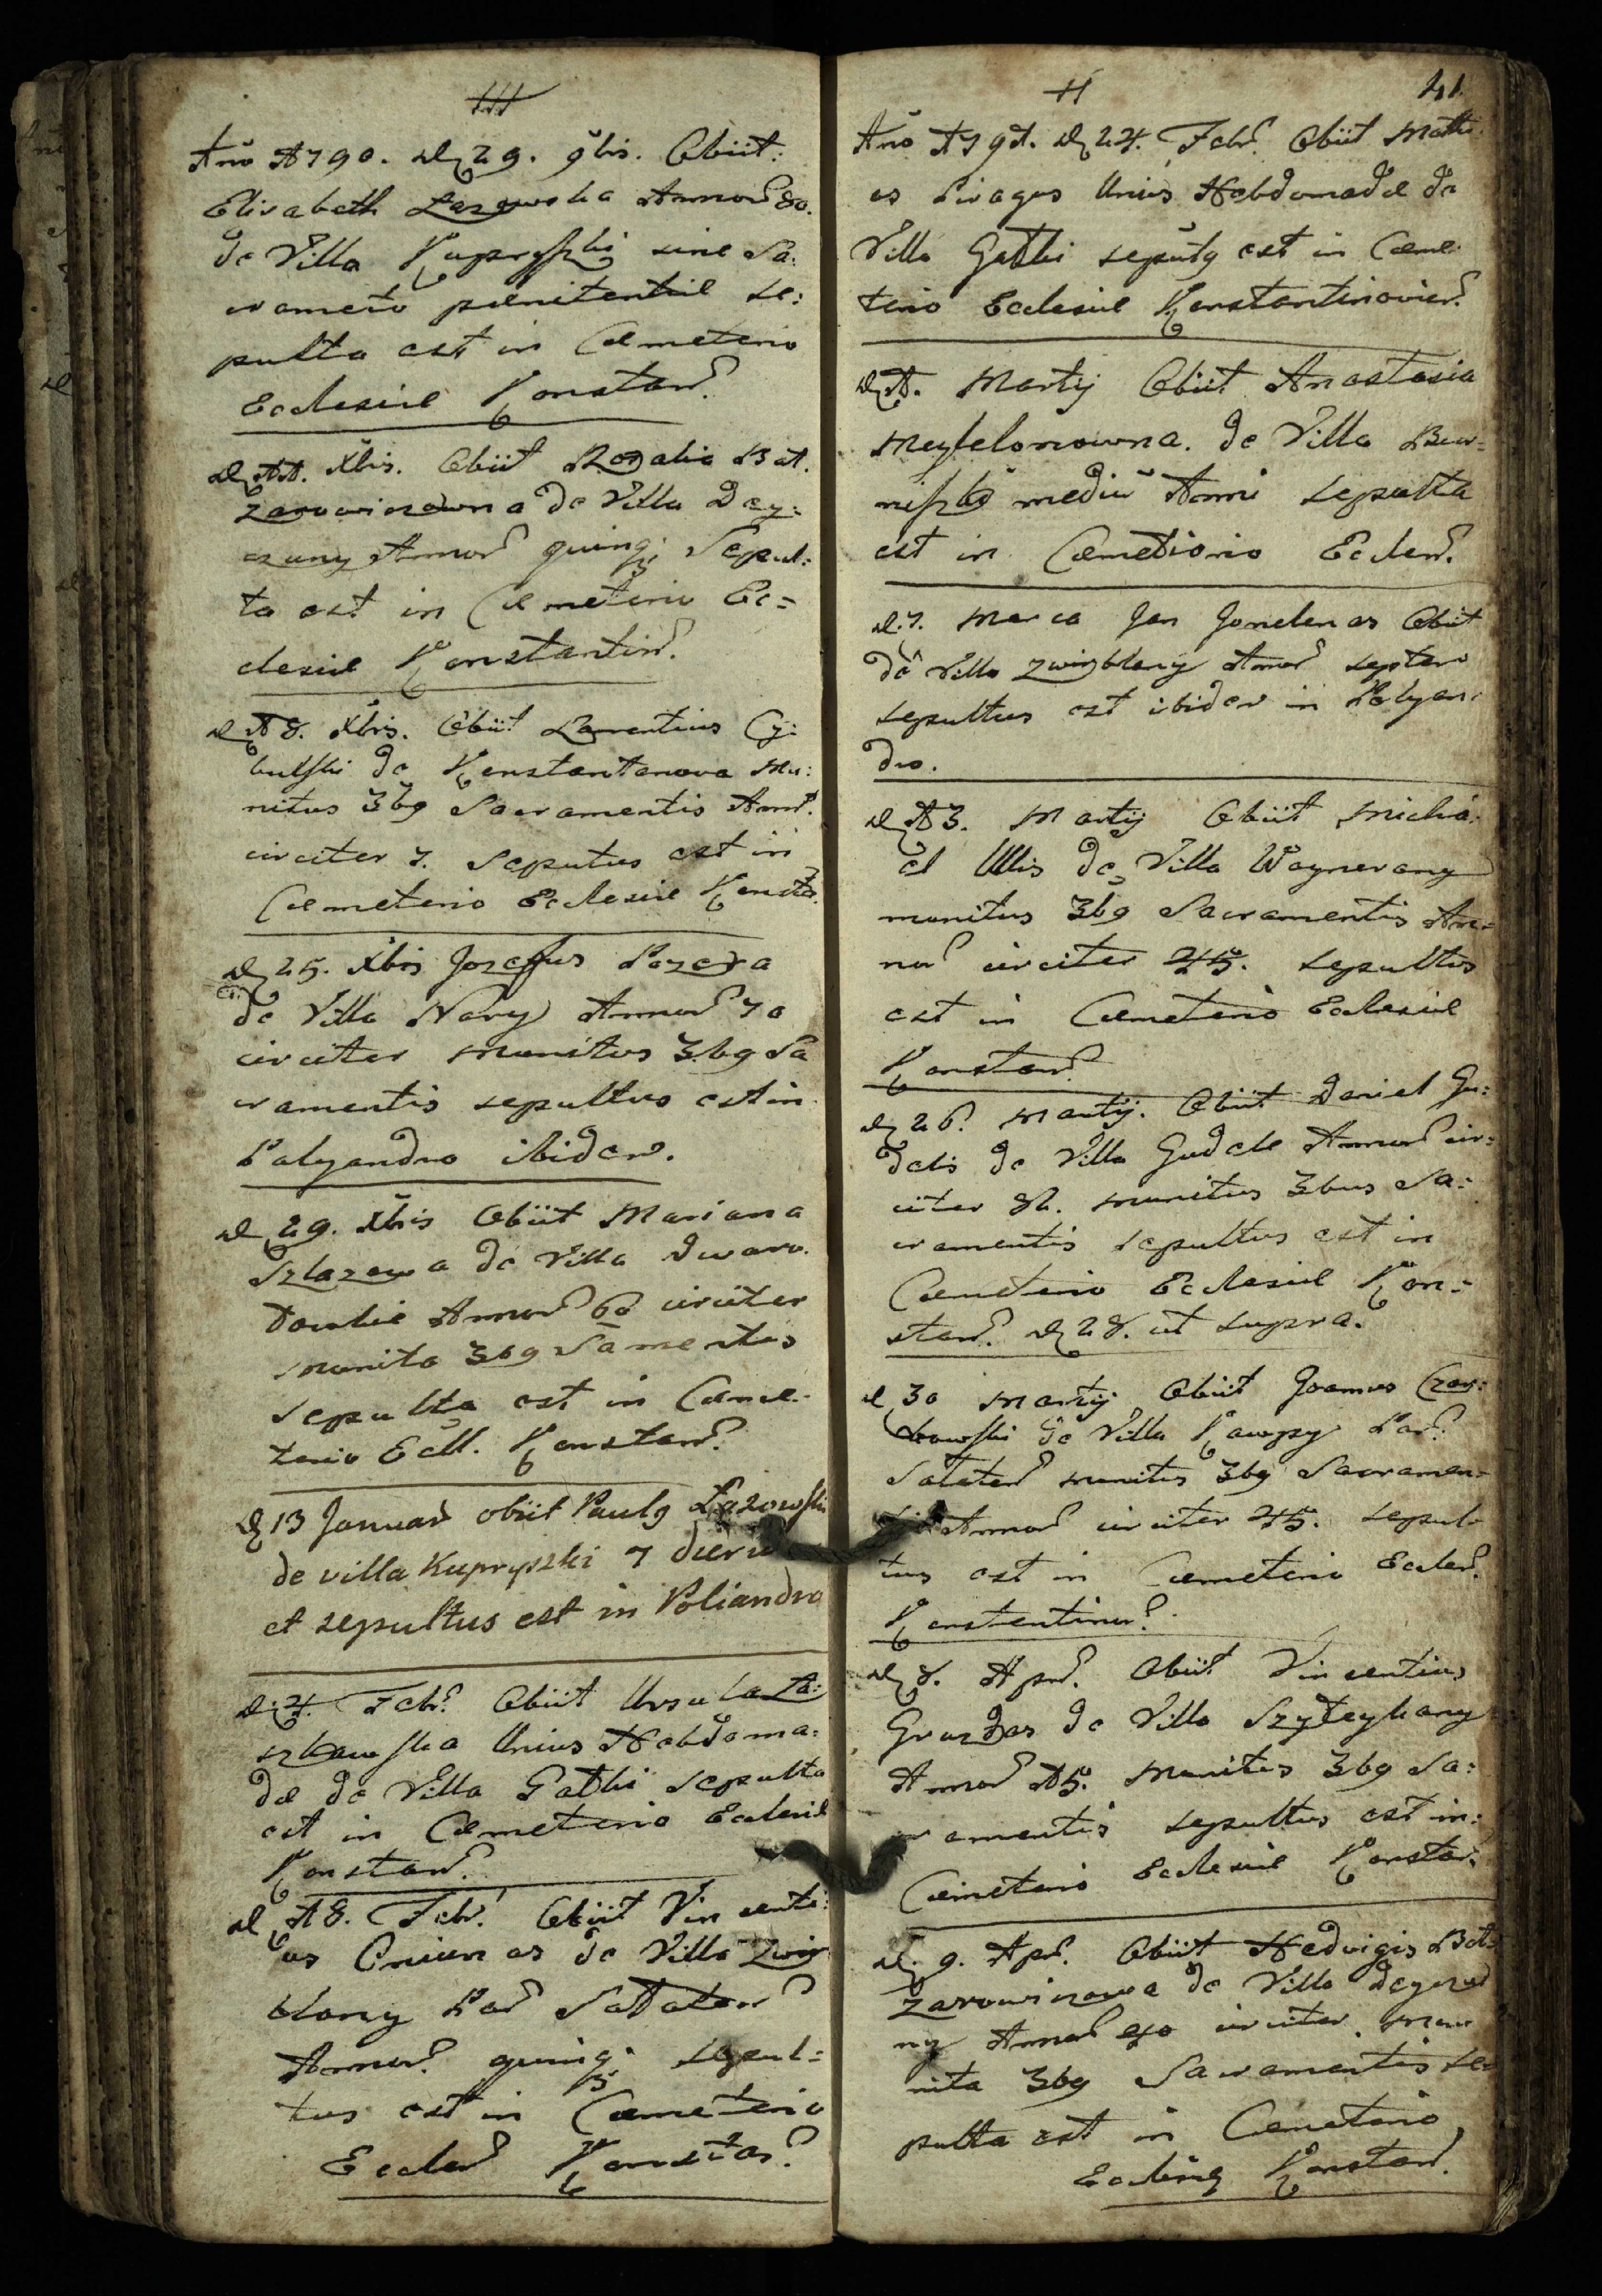 Año 1790. D 29. 9bris. Obiit:
Elisabeth Lazowska Annor 80.
de Villa Kupryszki sine Sa:
crameto pænitentiæ se:
pulta est in Cæmeterio
Ecclesiæ Konstan.
D 11. Xbris. Obiit Rozalia Bał.
zarowiczowna de Villa Dey:
czuny Annor quinq; Sepul:
ta est in Cæmeterio Ec=
clesiæ Konstantin.
D 18. Xbris. Obiit Laurentius Cy:
bulski de Konstantanowa Mu:
nitus 3b9 Sacramentis Annor.
circiter 7. Seputus est in
Cæmeterio Ecclesiæ Konsta.
D 25. Xbris Jozeffus Pozera
de Villa Nary Annor 70
circiter munitus 3b9 Sa
cramentis sepultus est in
Palyandro ibidem.
D 29. Xbris Obiit Mariana
Szlazewa de Villa Dwaro.
Annor 60 circiter
munita 3b9 Samentis
Sepulta est in Cæme-
terio Eccl. Konstan.
D 13 Januar obiit Paul9 Łazowski
de villa Kupryszki 7 dieru
et sepultus est in Poliandro
D. 4. Febr. Obiit Ursula Ła:
szkawska Unius Hebdoma:
dæ de Villa Gatki Sepulta
est in Cæmeterio Ecclesiæ
Konstan.
D 18. Febr. Obiit Vin centi:
us de Villa Zwir
blany Par Sattaten
Annor. quinq; sepul=
tus est in Cæmeterio
Eccles Konstan.
41.
Año 1791. D 24. Febr. Obiit Math
es Piragas Unius Hebdomadæ de
Villa Gatki sepult9 est in Cæme
terio Ecclesiæ Konstantinovien.
D 1. Martij Obiit Anastasia
Meyżelonowna. de Villa Bur=
niszki mediu Anni Sepulta
est in Cæmetiorio Eccles.
D. 7. Marca Jan Jonelenas Obiit
de Villa Zwirblany Annor septem
sepultus est ibidem in Polyan:
dro.
D 13. Martij Obiit Micha:
el Ulis de Villa Waynerany
munitus 3b9 Sacramentis An=
nor circiter 45. Sepultus
est in Cæmeterio Ecclesiæ
Konstan.
D 26. Martij. Obiit Daniel Gu:
delis de Villa Gudele Annor cir=
citer 81. munitus 3bus Sa:
cramentis sepultus est in
Cæmeterio Ecclesiæ Kon=
stan. D 28. ut supra.
D 30 Martij Obiit Joannes Czer:
kowski de Villa Kawpy Par.
Sataten munitus 3b9 Sacramen=
Annor circiter 45. Sepul-
tus est in Cæmeterio Eccles.
Konstantinor.
D 8. Apr. Obiit Vin centius
Gruzdas de Villa Szyłeykany
Annor 15. Munitus 3b9 Sa:
cramentis sepultus est in:
Cæmeterio Ecclesiæ Konstan.
D. 9. Apr. Obiit Hedvigis Bał
zarowiczowa de Villa Deyczu
ny Annor 40 circiter mu
nita 3b9 Sacramentis se=
pulta est in Cæmeterio
Konstan.